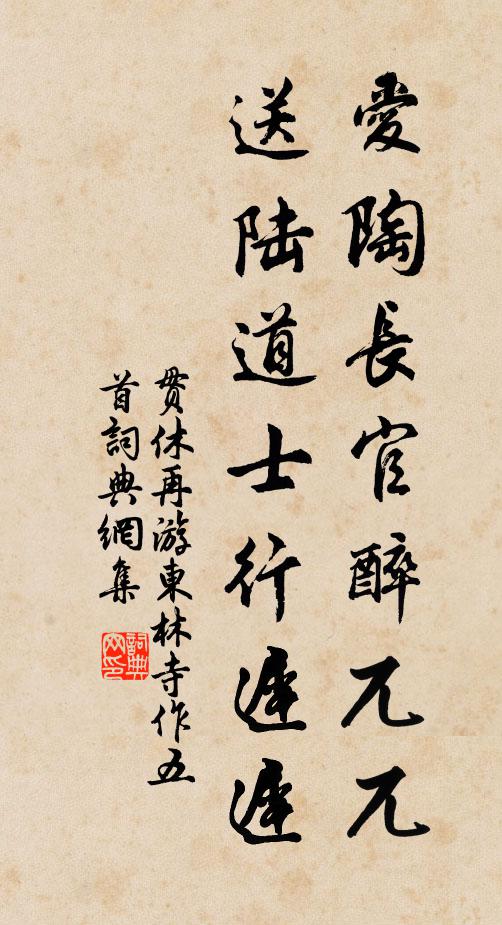 愛陶長官醉兀兀
送陆道士行遲遲
贯休再游東林寺作五
首詞典網集
詞典
网印